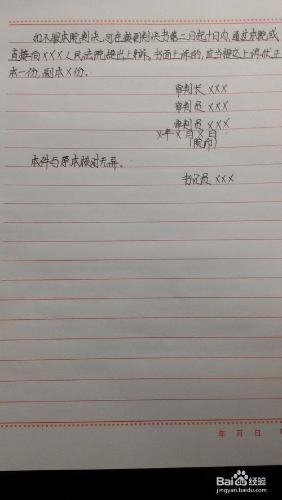 如不服本院判决，可在接到判决书第二日起十日内，通过本院或
直接向XXX人民法院提出上诉。书面上诉的，应当提交上诉状正
本一份，副本X份。
审判长 XXX
审判员 XXX
审判员 XXX
X年X月X日
(院印)
本件与原本核对无异。
书记员 XXX
年 月 日
Baidu经验
jingyan.baidu.com